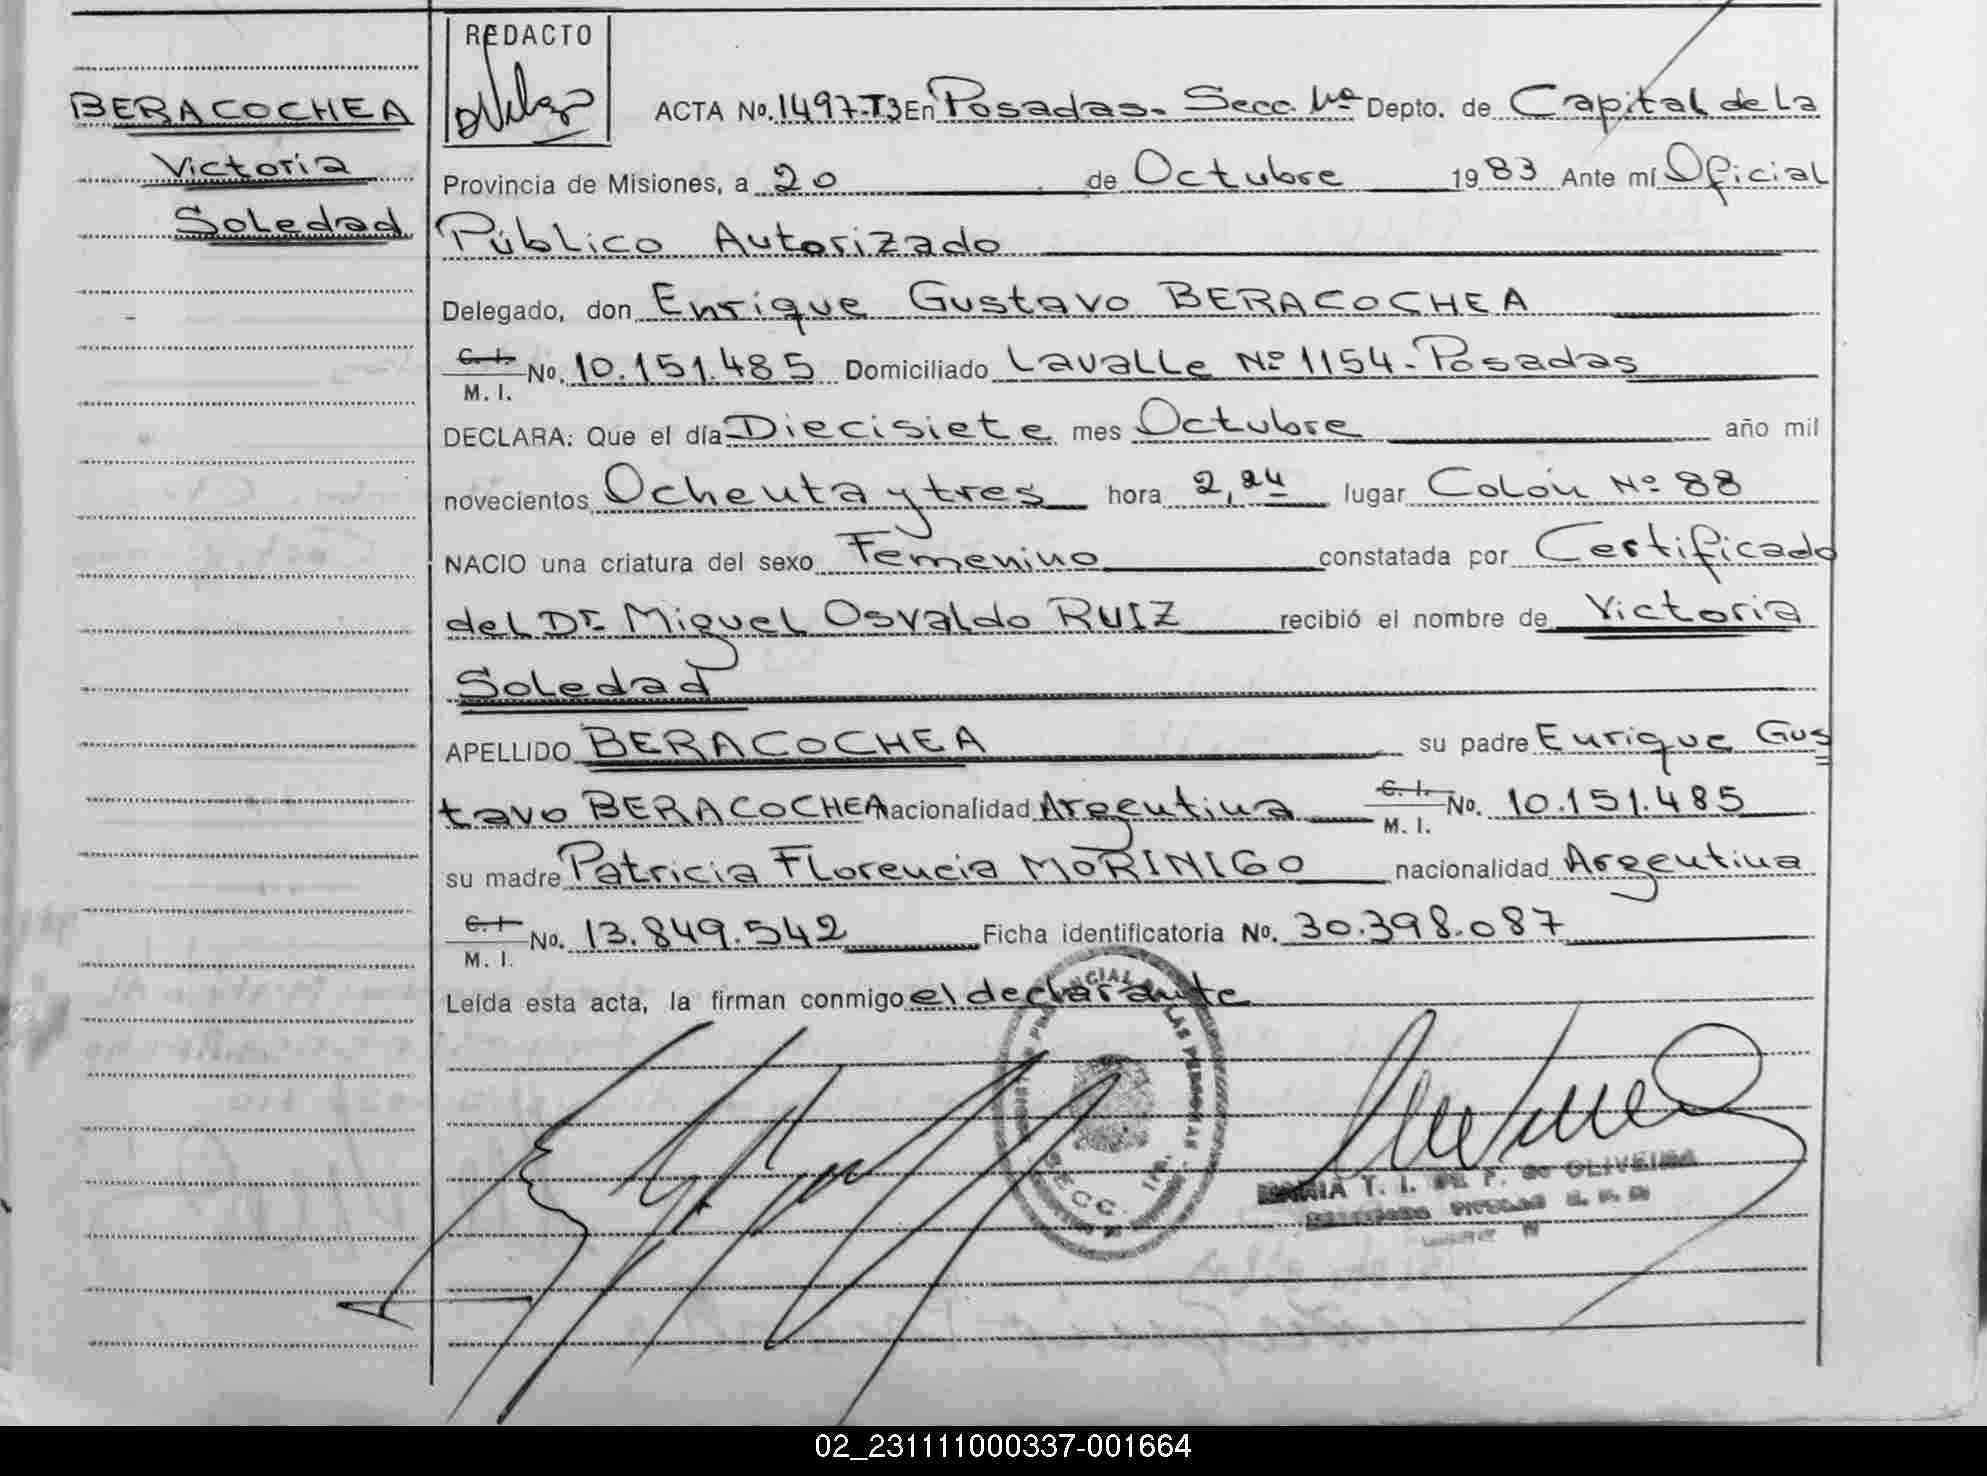 REDACTO
BERACOCHEA
Victoria
Soledad
ACTA No. 1497-T3 En Posadas. Secc. 1ra Depto. de Capital de La
Provincia de Misiones, a 20 de Octubre 1983 Ante mí Oficial
Público Autorizado
Delegado, don Enrique Gustavo BERACOCHEA
C. I. M. I. No. 10.151.485 Domiciliado Lavalle Nº 1154 - Posadas
DECLARA: Que el día Diecisiete mes Octubre año mil
novecientos Ochenta y tres hora 2,24 lugar Colón Nº 88
NACIO una criatura del sexo Femenino constatada por Certificado
del Dr. Miguel Osvaldo RUIZ recibió el nombre de Victoria
Soledad
APELLIDO BERACOCHEA su padre Enrique Gus
tavo BERACOCHEA nacionalidad Argentina C. I. M. I. No. 10.151.485
su madre Patricia Florencia MORINIGO nacionalidad Argentina
C. I. M. I. No. 13.849.542 Ficha identificatoria No. 30.398.087
Leída esta acta, la firman conmigo el declarante
REGISTRO PROVINCIAL DE LAS PERSONAS
SECC. 1RA.
MARIA T. I. DE P. de OLIVEIRA
02_231111000337-001664